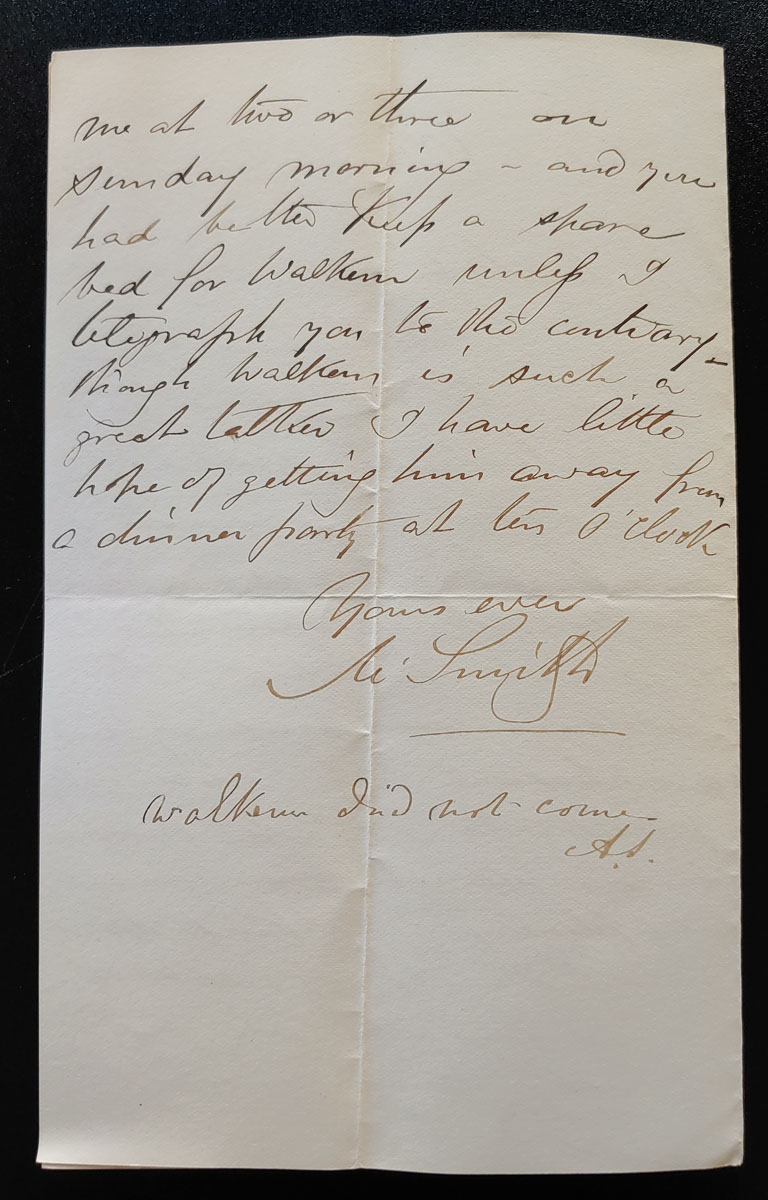 me at two or three on
Sunday morning - and you
had better keep a spare
bed for Walkem unless I
telegraph you to the contrary -
though Walkem is such a
great talker I have little
hope of getting him away from
a dinner party at ten O'clock
Yours ever
Smith
Walkem did not come
A.S.